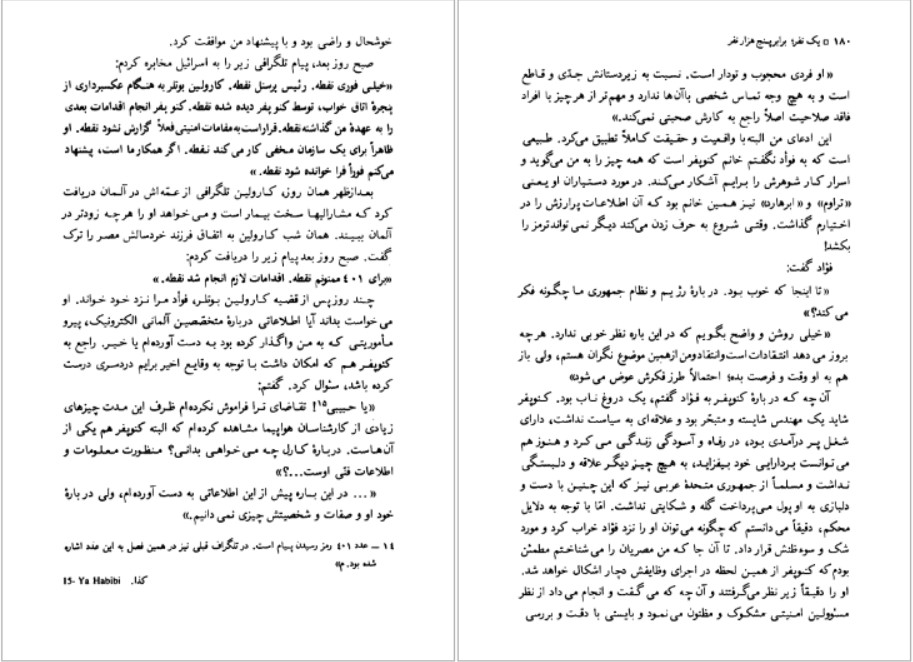 خوشحال و راضی بود و با پیشنهاد من موافقت کرد.
صبح روز بعد، پیام تلگرافی زیر را به اسرائیل مخابره کردم:
«خیلی فوری نقطه. رئیس پرسنل نقطه. کارولین بونلر به هنگام عکسبرداری از
پنجرهٔ اتاق خواب، توسط کنوپفر دیده شده نقطه. کنو پفر انجام اقدامات بعدی
را به عهدهٔ من گذاشته نقطه. قرار است به مقامات امنیتی فعلاً گزارش نشود نقطه. او
ظاهراً برای یک سازمان مخفی کار می‌کند نقطه. اگر همکار ما است، پیشنهاد
می‌کنم فوراً فرا خوانده شود نقطه. »
بعدازظهر همان روز، کارولین تلگرافی از عمّه‌اش در آلمان دریافت
کرد که مشارالیها سخت بیمار است و می خواهد او را هرچه زودتر در
آلمان ببیند. همان شب کارولین به اتفاق فرزند خردسالش مصر را ترک
گفت. صبح روز بعد پیام زیر را دریافت کردم:
«برای ٤٠١ ممنونم نقطه. اقدامات لازم انجام شد نقطه. »
چند روز پس از قضیه کارولین بونلر، فوأد مرا نزد خود خواند. او
می خواست بداند آیا اطلاعاتی دربارهٔ متخصصین آلمانی الکترونیک، پیرو
مأموریتی که به من واگذار کرده بود به دست آورده‌ام یا خیر. راجع به
کنوپفر هم که امکان داشت با توجه به وقایع اخیر برایم دردسری درست
کرده باشد، سئوال کرد. گفتم:
«یا حبیبی۱۵! تقاضای ترا فراموش نکرده‌ام ظرف این مدت چیزهای
زیادی از کارشناسان هواپیما مشاهده کرده‌ام که البته کنوپفر هم یکی از
آن‌هاست. دربارهٔ کارل چه می‌خواهی بدانی؟ منظورت معلومات و
اطلاعات فنّی اوست...؟»
«... در این باره پیش از این اطلاعاتی به دست آورده‌ام، ولی در بارهٔ
خود او و صفات و شخصیتش چیزی نمی دانیم.»
۱۴ — عدد ٤٠١ رمز رسیدن پیام است. در تلگراف قبلی نیز در همین فصل به این عدد اشاره
شده بود.م»
15- Ya Habibi کذا.
۱۸۰ □ یک نفر؛ برابر پنج هزار نفر
«او فردی محجوب و تودار است. نسبت به زیردستانش جدّی و قاطع
است و به هیچ وجه تماس شخصی با آن‌ها ندارد و مهم‌تر از هر چیز با افراد
فاقد صلاحیت اصلاً راجع به کارش صحبتی نمی‌کند.»
این ادعای من البته با واقعیت و حقیقت کاملاً تطبیق می‌کرد. طبیعی
است که به فوأد نگفتم خانم کنوپفر است که همه چیز را به من می‌گوید و
اسرار کار شوهرش را برایم آشکار می‌کند. در مورد دستیاران او یعنی
«تراوم» و «ابرهارد» نیز همین خانم بود که آن اطلاعات پرارزش را در
اختیارم گذاشت. وقتی شروع به حرف زدن می‌کند دیگر نمی تواند ترمز را
بکشد!
فؤاد گفت:
«تا اینجا که خوب بود. در بارهٔ رژیم و نظام جمهوری ما چگونه فکر
می کند؟»
«خیلی روشن و واضح بگویم که در این باره نظر خوبی ندارد. هرچه
بروز می دهد انتقادات است و انتقاد و من از همین موضوع نگران هستم، ولی باز
هم به او وقت و فرصت بده؛ احتمالاً طرز فکرش عوض می شود»
آن چه که در بارهٔ کنوپفر به فؤاد گفتم، یک دروغ ناب بود. کنوپفر
شاید یک مهندس شایسته و متبحّر بود و علاقه‌ای به سیاست نداشت، دارای
شغل پر درآمدی بود، در رفاه و آسودگی زندگی می کرد و هنوز هم
می توانست بر دارایی خود بیفزاید، به هیچ چیز دیگر علاقه و دلبستگی
نداشت و مسلماً از جمهوری متحدهٔ عربی نیز که این چنین با دست و
دلبازی به او پول می‌پرداخت گله و شکایتی نداشت. امّا با توجه به دلایل
محکم، دقیقاً می دانستم که چگونه می‌توان او را نزد فؤاد خراب کرد و مورد
شک و سوءظنش قرار داد. تا آن جا که من مصریان را می شناختم مطمئن
بودم که کنوپفر از همین لحظه در اجرای وظایفش دچار اشکال خواهد شد.
او را دقیقاً زیر نظر می‌گرفتند و آن چه که می گفت و انجام می داد از نظر
مسئولین امنیتی مشکوک و مظنون می‌نمود و بایستی با دقت و بررسی